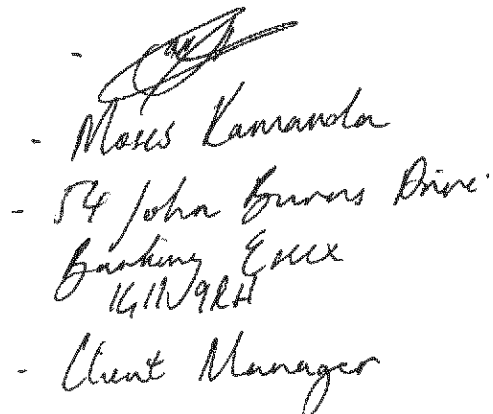 - Moses Kamanda
- 54 John Burns Drive
Barking Essex
IG11 9RH
- Client Manager